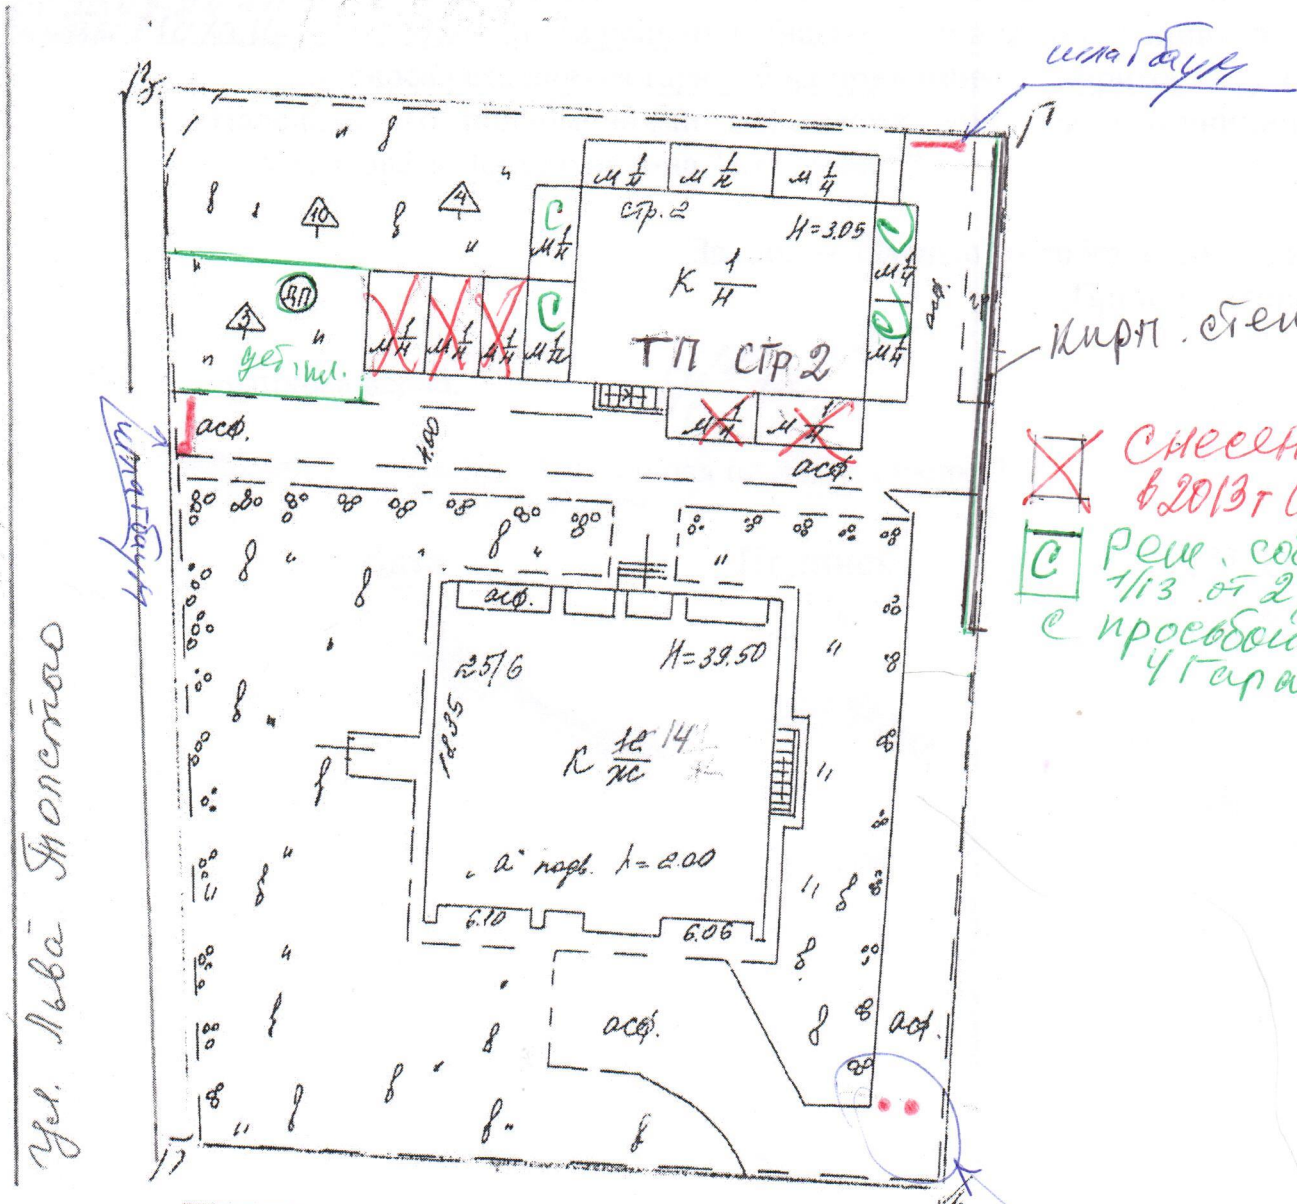 шлагбаум
М 1/Н
М 1/Н
М 1/Н
10
4
С
М 1/Н
стр. 2
Н=3.05
К 1/Н
С
М 1/Н
С
М 1/Н
асф.
ДП
3
дет. пл.
М 1/Н
М 1/Н
М 1/Н
С
М 1/Н
ТП СТР.2
кирп. стен
М 1/Н
М 1/Н
асф.
4.00
асф.
шлагбаум
снесен
в 2013г (
С
Реш. соб
1/13 от 2
с просьбой
4 гара
асф.
25/6
Н=39.50
18.35
К
14
"а" подв. h=2.00
6.10
6.06
асф.
асф.
ул. Льва Толстого